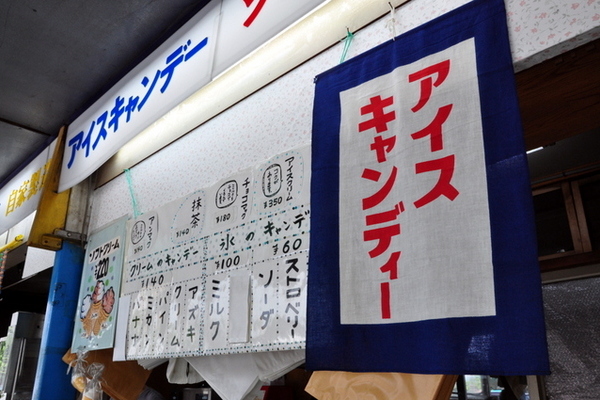 アイスキャンデー
自家製
アイス
キャンディー
ソフトクリーム
¥220
アイスクリーム
¥350
チョコマック
¥180
抹茶
¥140
氷のキャンデー
¥60
¥100
クリームのキャンデー
¥140
ストロベリー
ソーダ
ミルク
アズキ
クリーム
パイン
ミカン
バナナ